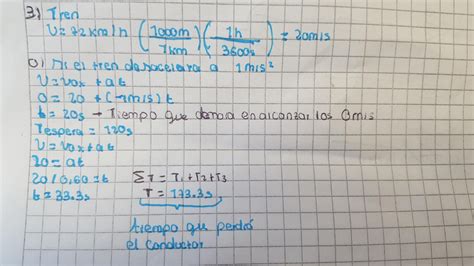 3) Tren
V= 72 km/h (1000m/1km) (1h/3600s) = 20m/s
a) Si el tren desacelera a 1m/s²
V = Vox + at
0 = 20 + (-1m/s) t
t = 20s → Tiempo que demora en alcanzar los 0m/s
Tespera = 120s
V = Vox + at
20 = at
20/0,60 = t
t = 33.3s
ΣT = T1 + T2 + T3
T = 173.3s
tiempo que perdió
el conductor